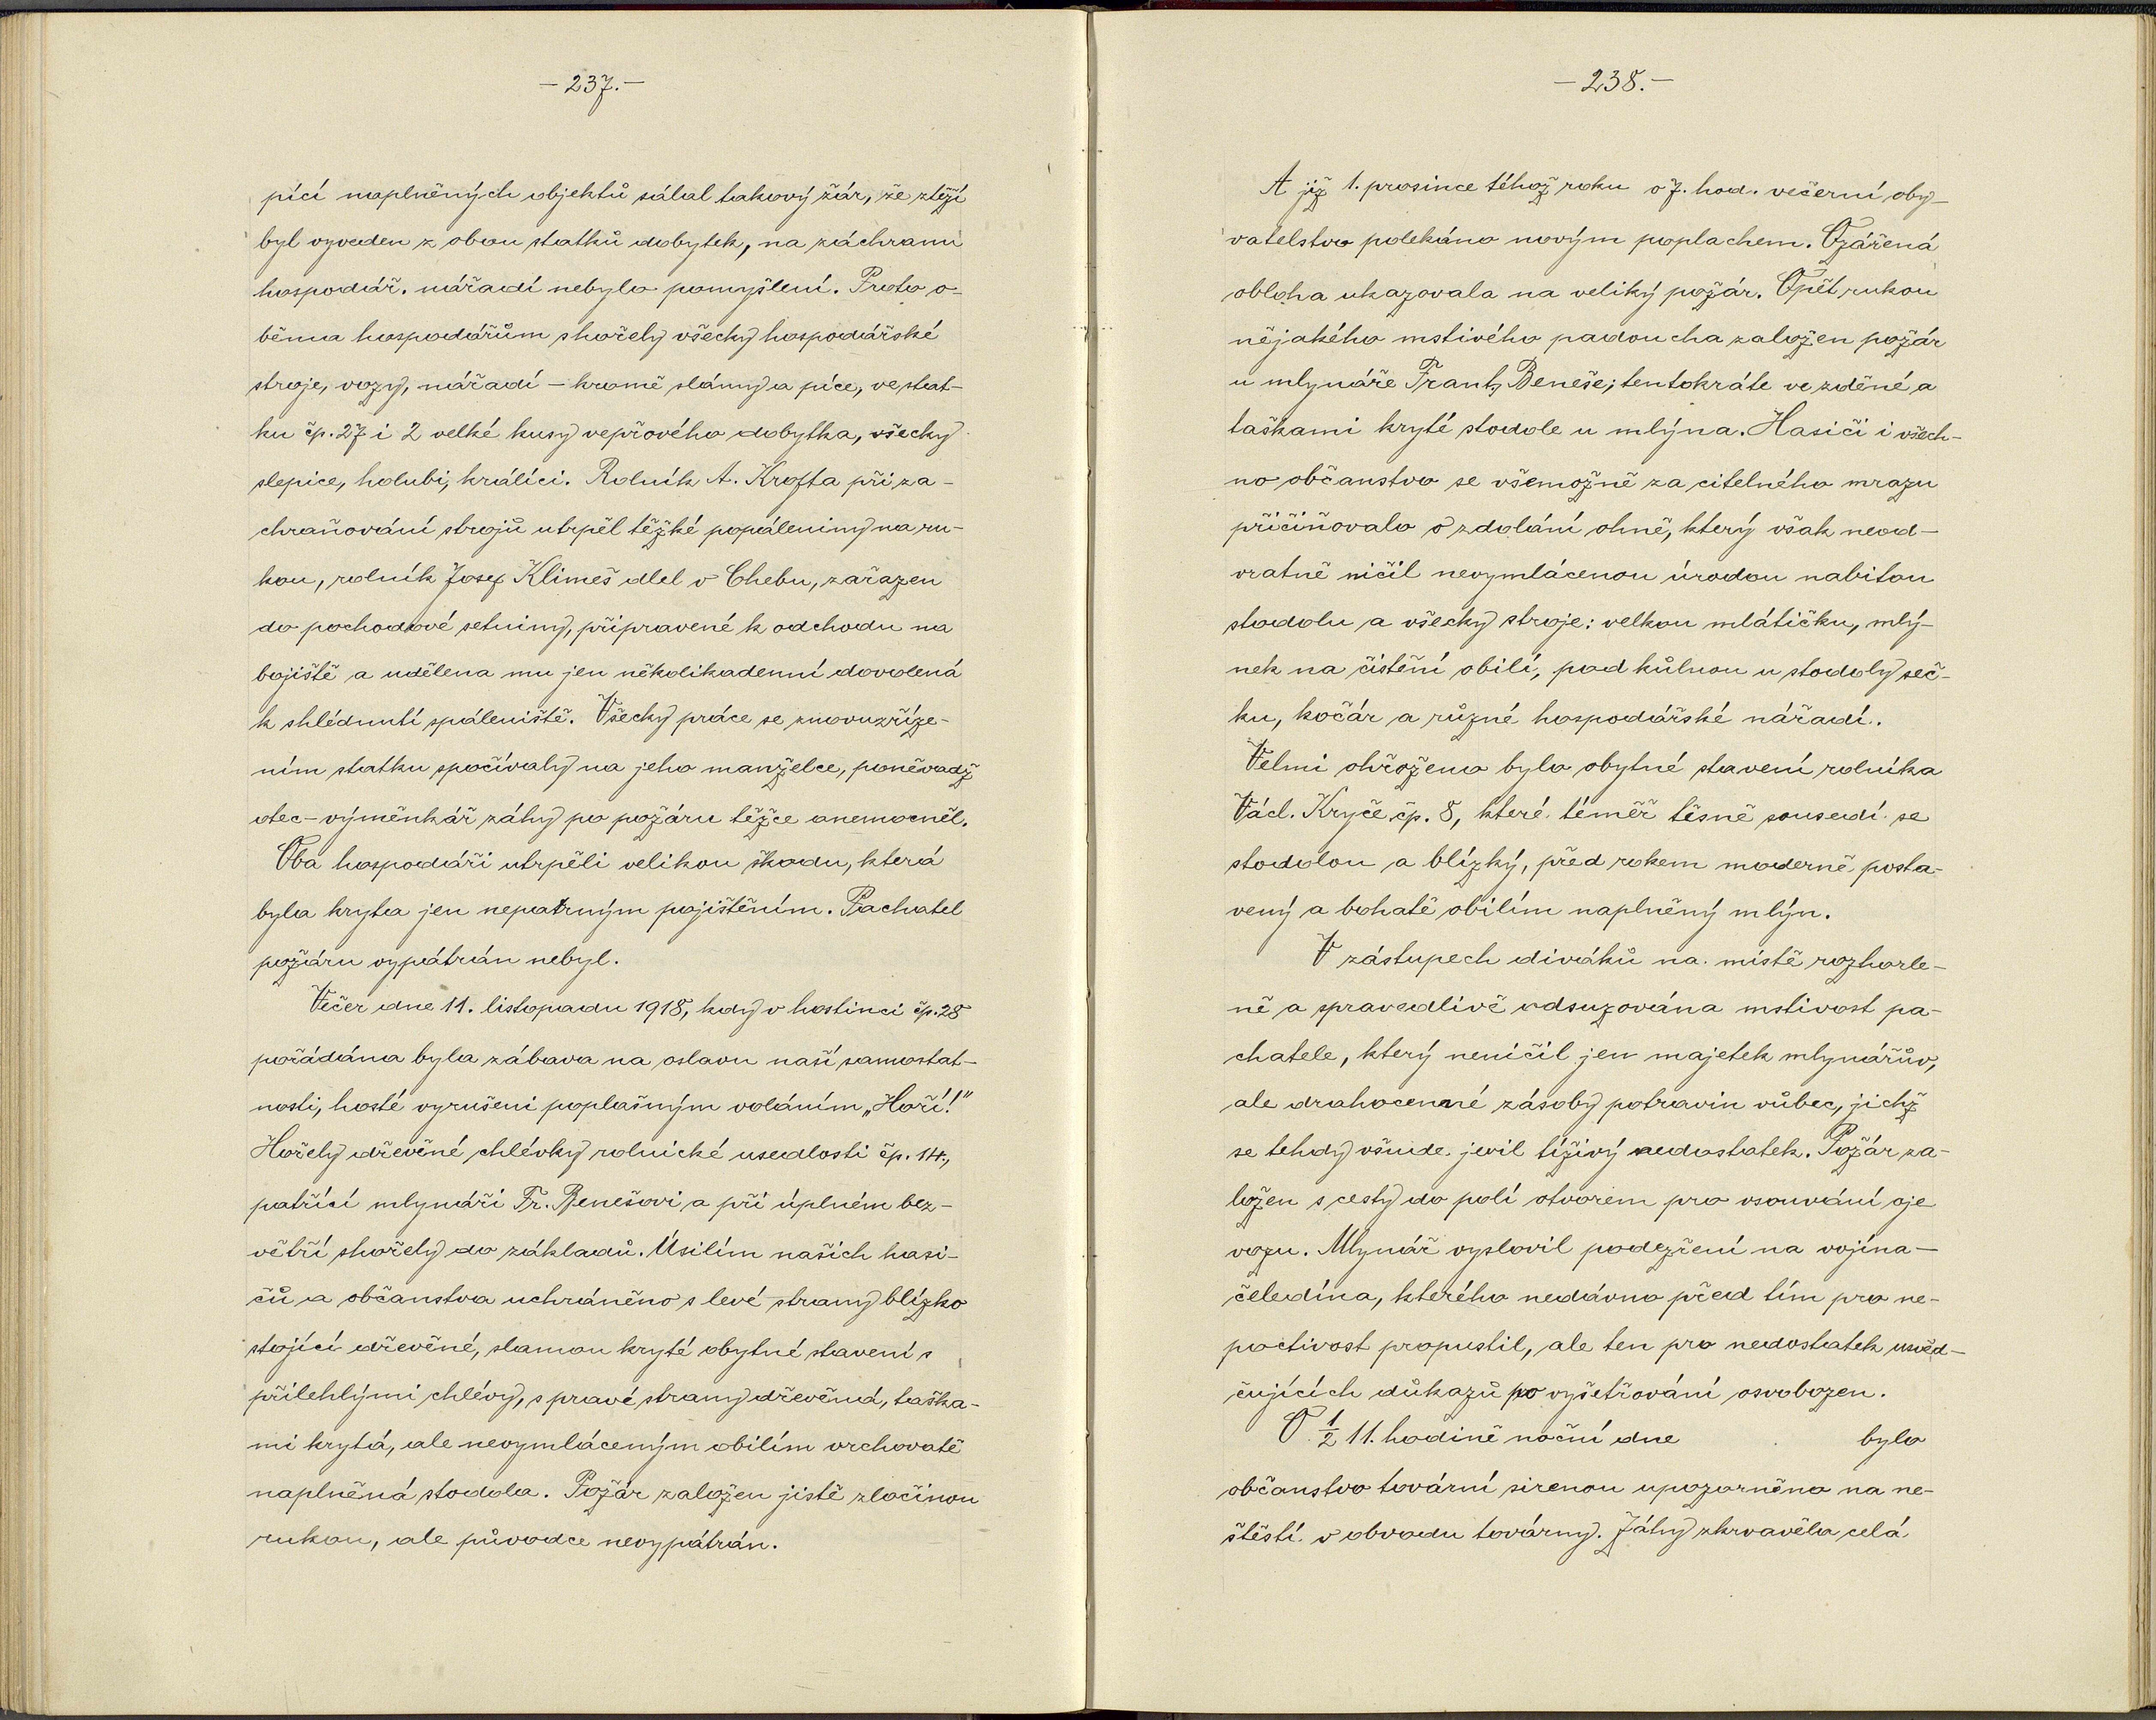 — 237. —
pící naplněných objektů sálal takový žár, že ztěží
byl vyveden z obou statků dobytek, na záchranu
hospodář. nářadí nebylo pomyšlení. Proto o-
běma hospodářům shořely všecky hospodářské
stroje, vozy, nářadí – kromě slámy a píce, ve stat-
ku čp. 27 i 2 velké kusy vepřového dobytka, všecky
slepice, holubi, králíci. Rolník A. Krofta při za-
chraňování strojů utrpěl těžké popáleniny na ru-
kou, rolník Josef Klimeš dlel v Chebu, zařazen
do pochodové setniny, připravené k odchodu na
bojiště a udělena mu jen několikadenní dovolená
k shlédnutí spáleniště. Všecky práce se znovuzříze-
ním statku spočívaly na jeho manželce, poněvadž
otec – výměnkář záhy po požáru těžce onemocněl.
Oba hospodáři utrpěli velikou škodu, která
byla kryta jen nepatrným pojištěním. Pachatel
požáru vypátrán nebyl.
Večer dne 11. listopadu 1918, kdy v hostinci čp. 28
pořádána byla zábava na oslavu naší samostat-
nosti, hosté vyrušeni poplašným voláním „Hoří!"
Hořely dřevěné chlévky rolnické usedlosti čp. 14.,
patřící mlynáři Fr. Benešovi a při úplném bez-
větří shořely do základů. Úsilím našich hasi-
čů a občanstva uchráněno s levé strany blízko
stojící dřevěné, slamou kryté obytné stavení s
přilehlými chlévy, s pravé strany dřevěná, taška-
mi krytá, ale nevymláceným obilím vrchovatě
naplněná stodola. Požár založen jistě zločinou
rukou, ale původce nevypátrán.
— 238. —
A již 1. prosince téhož roku o 7. hod. večerní oby-
vatelstvo polekáno novým poplachem. Ozářená
obloha ukazovala na veliký požár. Opět rukou
nějakého mstivého padoucha založen požár
u mlynáře Frant. Beneše; tentokráte ve zděné a
taškami kryté stodole u mlýna. Hasiči i všech-
no občanstvo se všemožně za citelného mrazu
přičiňovalo o zdolání ohně, který však neod-
vratně ničil nevymlácenou úrodou nabitou
stodolu a všecky stroje: velkou mlátičku, mlý-
nek na čistění obilí, pod kůlnou u stodoly seč-
ku, kočár a různé hospodářské nářadí.
Velmi ohroženo bylo obytné stavení rolníka
Václ. Kryče čp. 8, které téměř těsně sousedí se
stodolou a blízký, před rokem moderně posta-
vený a bohatě obilím naplněný mlýn.
V zástupech diváků na místě rozhorle-
ně a spravedlivě odsuzována mstivost pa-
chatele, který neničil jen majetek mlynářův,
ale drahocenné zásoby potravin vůbec, jichž
se tehdy všude jevil tíživý nedostatek. Požár za-
ložen s cesty do polí otvorem pro vsouvání oje
vozu. Mlynář vyslovil podezření na vojína –
čeledína, kterého nedávno před tím pro ne-
poctivost propustil, ale ten pro nedostatek usvěd-
čujících důkazů po vyšetřování osvobozen.
O ½ 11. hodině noční dne bylo
občanstvo tovární sirenou upozorněno na ne-
štěstí v obvodu továrny. Záhy zkrvavěla celá